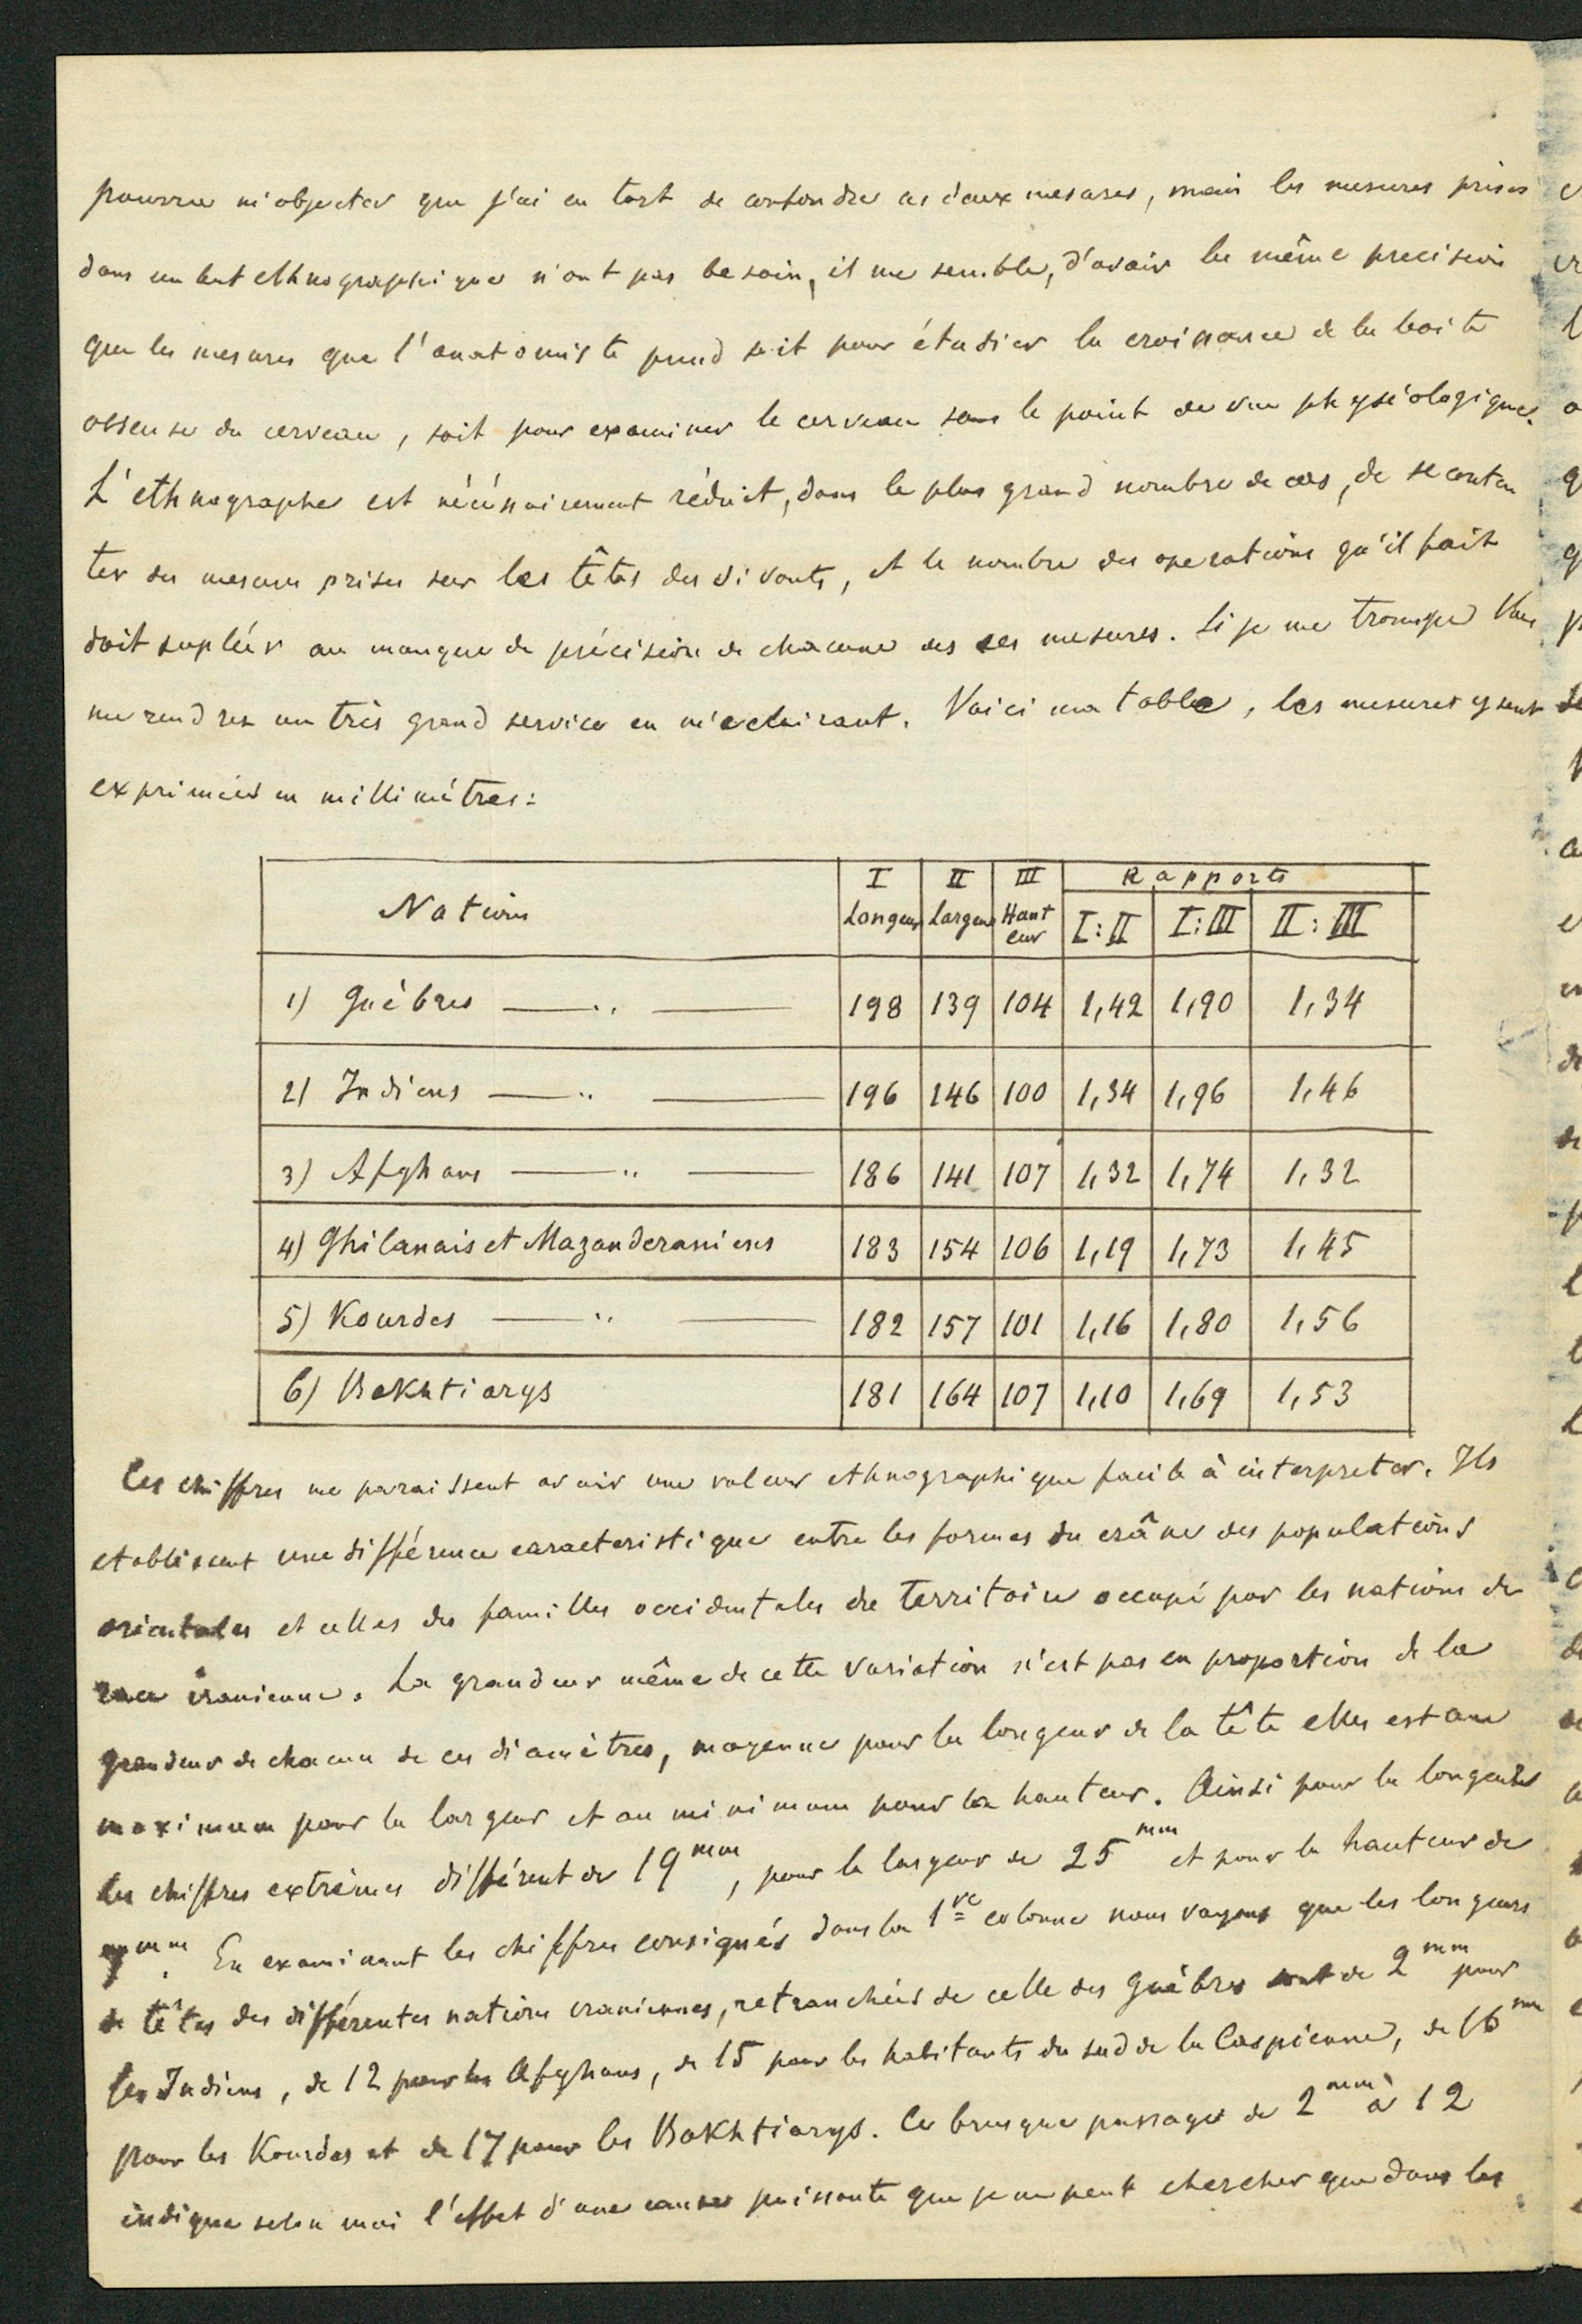 pourra m'objecter que j'ai eu tort de confondre ces deux mesures, mais les mesures prises
dans un but ethnographique n'ont pas besoin, il me semble, d'avoir la même precision
que les mesures que l'anatomiste prend soit pour étudier la croissance de la boite
osseuse du cerveau, soit pour examiner le cerveau sous le point de vue physiologique.
L'ethnographe est nécéssairement réduit, dans le plus grand nombre de cas, de se conten
ter des mesures prises sur les têtes des vivants, et le nombre des operations qu'il fait
doit supléer au manque de précision de chacune des ses mesures. Si je me trompe Vous
me rendrez un très grand service en m'eclairant. Voici ma table, les mesures y sont
exprimées en millimètres:
Nations I Longeur II Largeur III Haut eur Rapports I:II I:III II:III
1) Guèbres — .. — 198 139 104 1,42 1,90 1,34
2) Indiens — .. — 196 146 100 1,34 1,96 1,46
3) Afghans — .. — 186 141 107 1,32 1,74 1,32
4) Ghilanais et Mazanderaniens 183 154 106 1,19 1,73 1,45
5) Kourdes — .. — 182 157 101 1,16 1,80 1,56
6) Bakhtiarys 181 164 107 1,10 1,69 1,53
Ces chiffres me paraissent avoir une valeur ethnographique facile à interpreter. Ils
etablissent une différence caracteristique entre les formes du crâne des populations
orientales et celles des familles occidentales du territoire occupé par les nations de
race iranienne. La grandeur même de cette variation n'est pas en proportion de la
grandeur de chacun de ces diamètres, moyenne pour la longeur de la tête elle est au
maximum pour la largeur et au minimum pour la hauteur. Ainsi pour la longeur
les chiffres extrêmes différent de 19 mm, pour la largeur de 25 mm et pour la hauteur de
7 mm. En examinant les chiffres consignés dans la 1re colonne nous voyons que les longeurs
de têtes des différentes nations iraniennes, retranchées de celle des Guèbres de 2 mm pour
les Indiens, de 12 pour les Afghans, de 15 pour les habitants du sud de la Caspienne, de 16 mm
pour les Kourdes et de 17 pour les Bakhtiarys. Ce brusque passage de 2 mm à 12
indique selon moi l'effet d'une cause puissante que je ne peux chercher que dans les